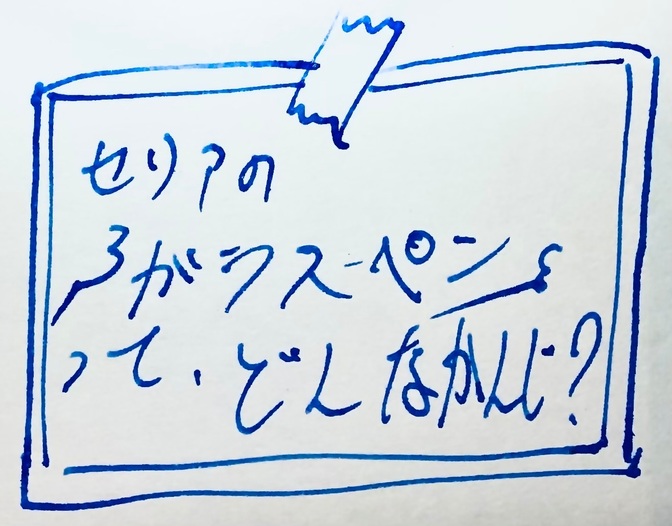 セリアの
ガラスペン
って、どんなかんじ?